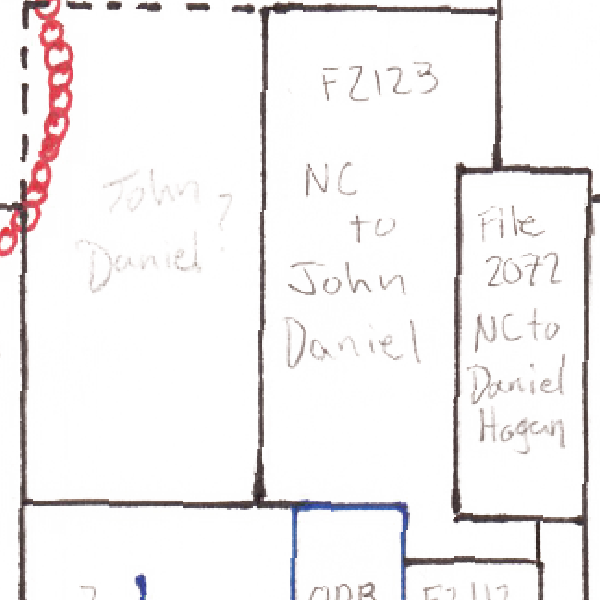 John ?
Daniel
F2123
NC
to
John
Daniel
File
2072
NC to
Daniel
Hogan
?